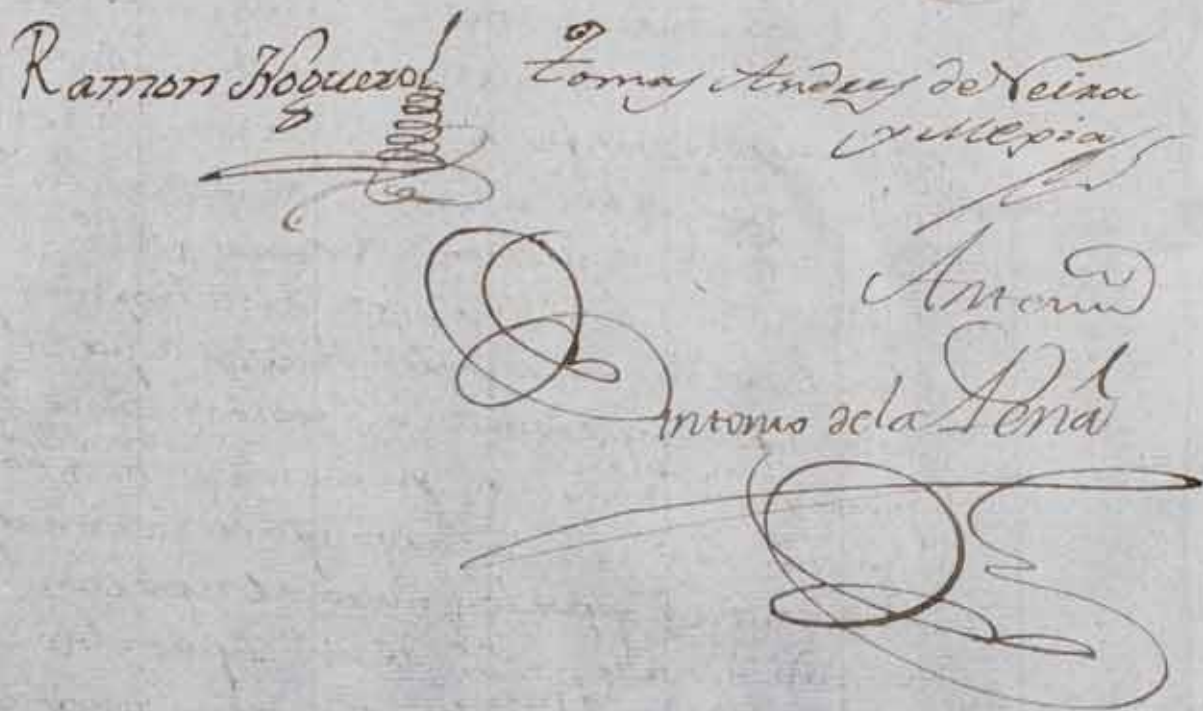 Ramon Noguerol
Tomas Andres de Neira
y Mexia
Antonio
Antonio de la Pena